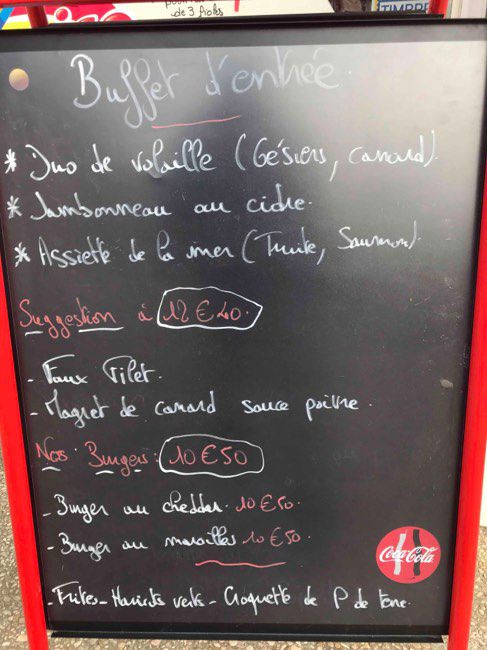 de 3 fioles
TIMBRE
Buffet d'entrée
* Duo de volaille (Gésiers, canard)
* Jambonneau au cidre.
* Assiette de la mer (Truite, Saumon)
Suggestion à 12€40.
- Faux Filet.
- Magret de canard sauce poivre.
Nos Burgers: 10€50
- Burger au cheddar. 10€50.
- Burger au maroilles 10€50.
Coca-Cola
- Frites - Haricots verts - Croquette de P de terre.